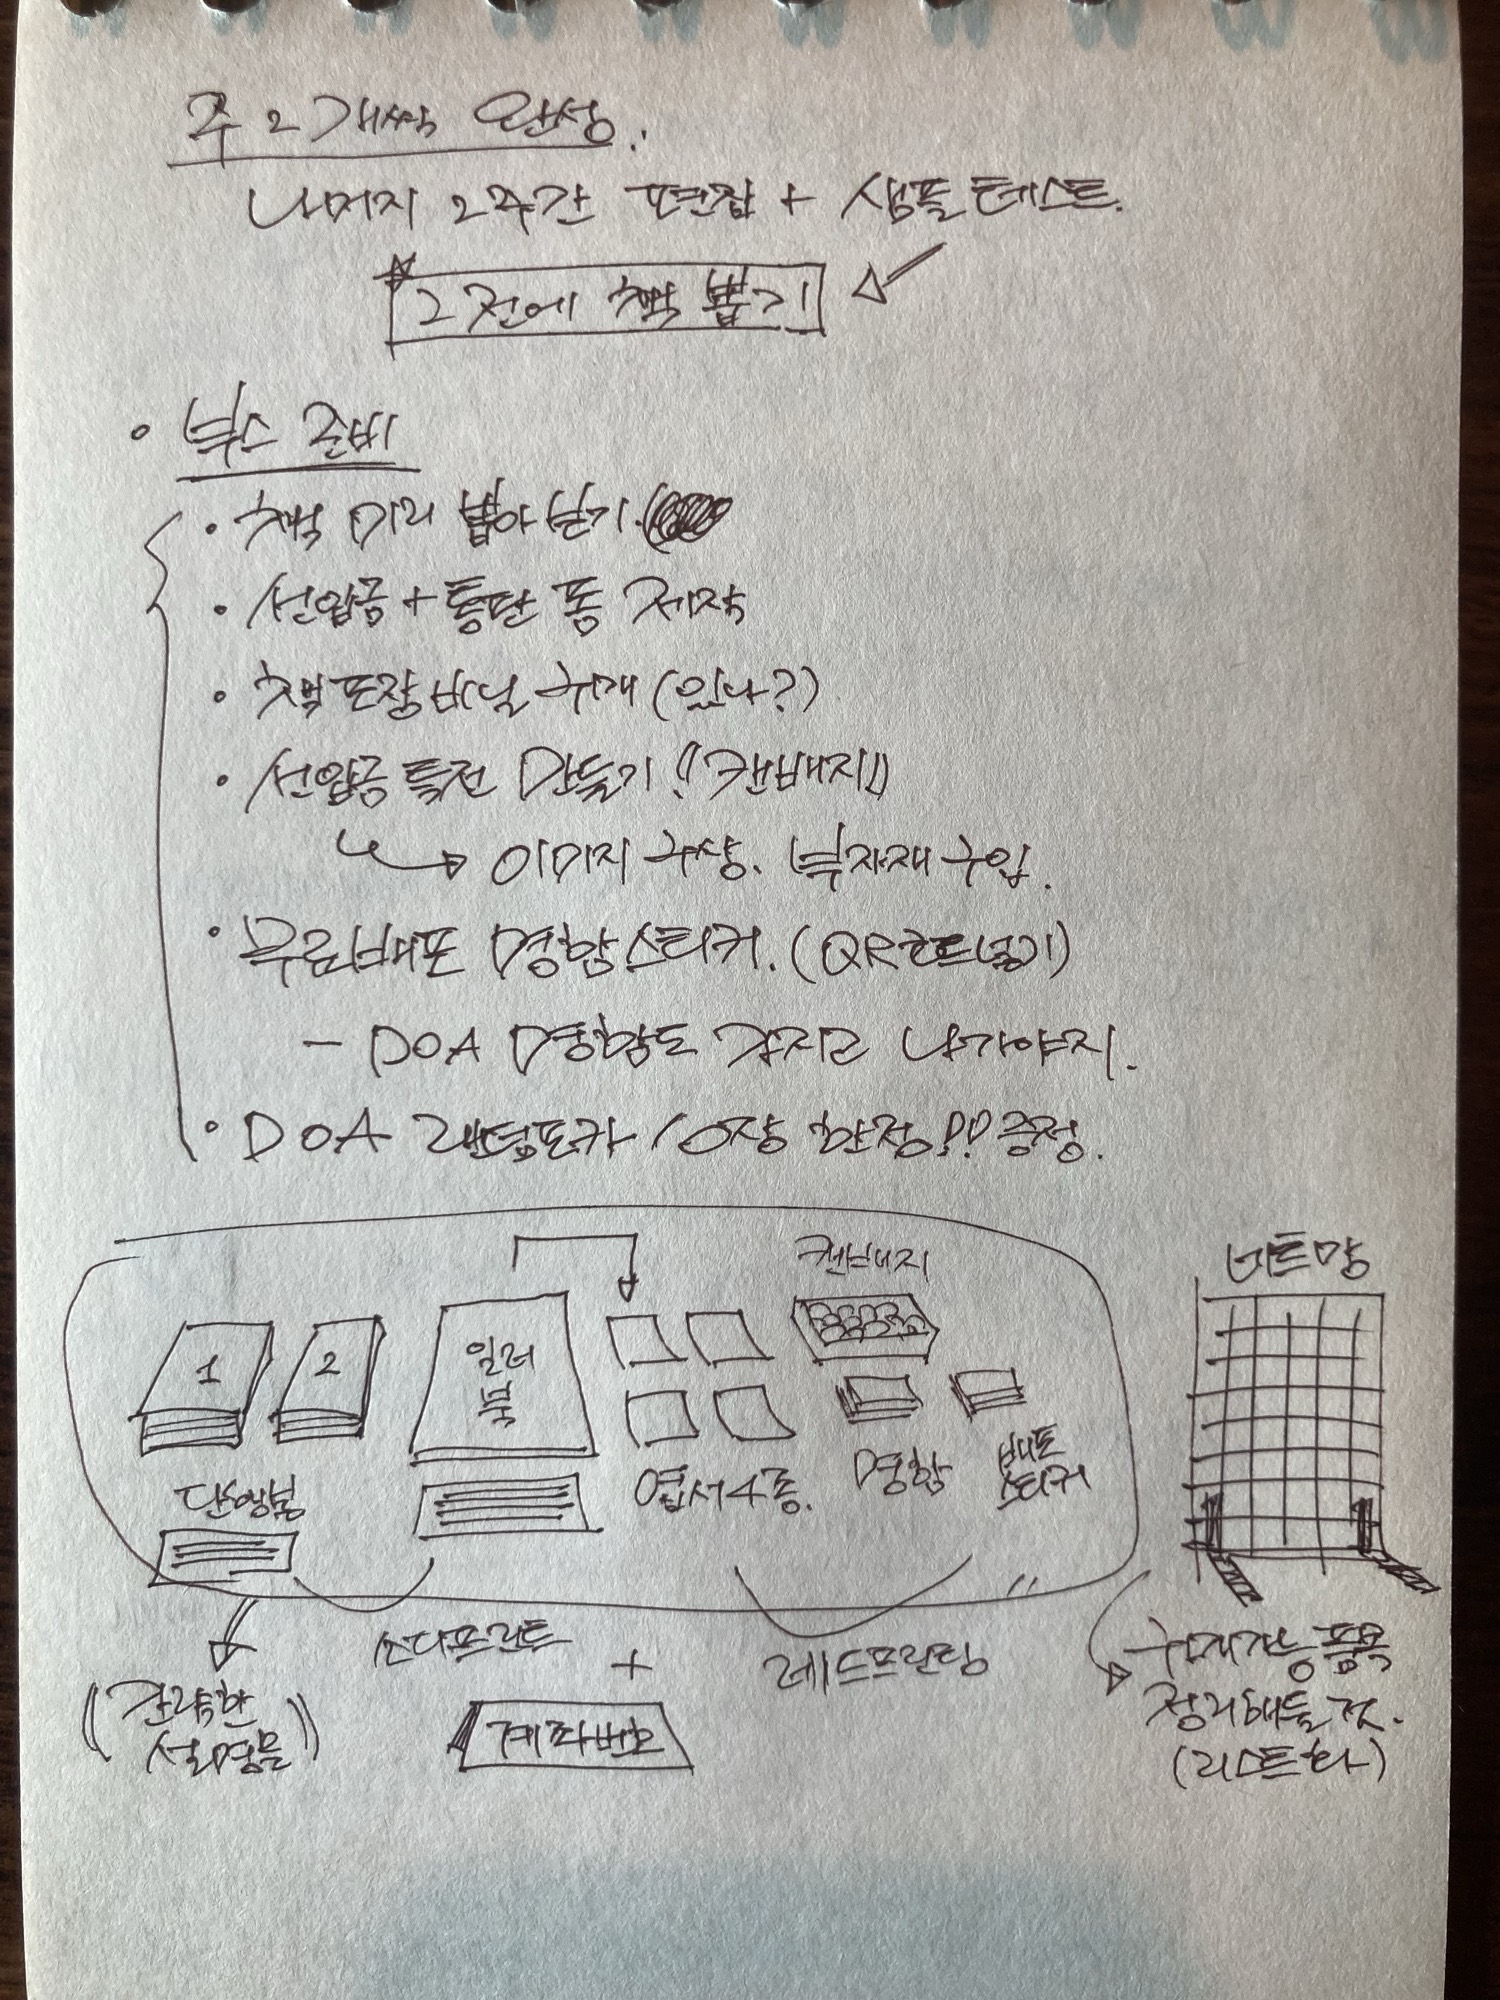 주 2개씩 완성.
나머지 2주간 편집 + 샘플테스트.
그 전에 책 뽑기
• 부스 준비
• 책 미리 뽑아보기.
• 선입금 + 통판 폼 제작
• 책포장비닐 구매 (있나?)
• 선입금 특전 만들기!! 캔배지!!
이미지 구상. 부자재 구입.
• 무료배포 명함스티커. (QR코드넣기)
- DOA 명함도 갖고 나가야지.
• DOA 랜덤포카 10장 한정!! 증정.
캔배지
네트망
1
2
일러
북
단행본
엽서 4종.
명함
배포
스티커
소다프린트
+
레드프린팅
(간략한
설명문)
계좌번호
구매가능 품목
정리해둘 것.
(리스트화)